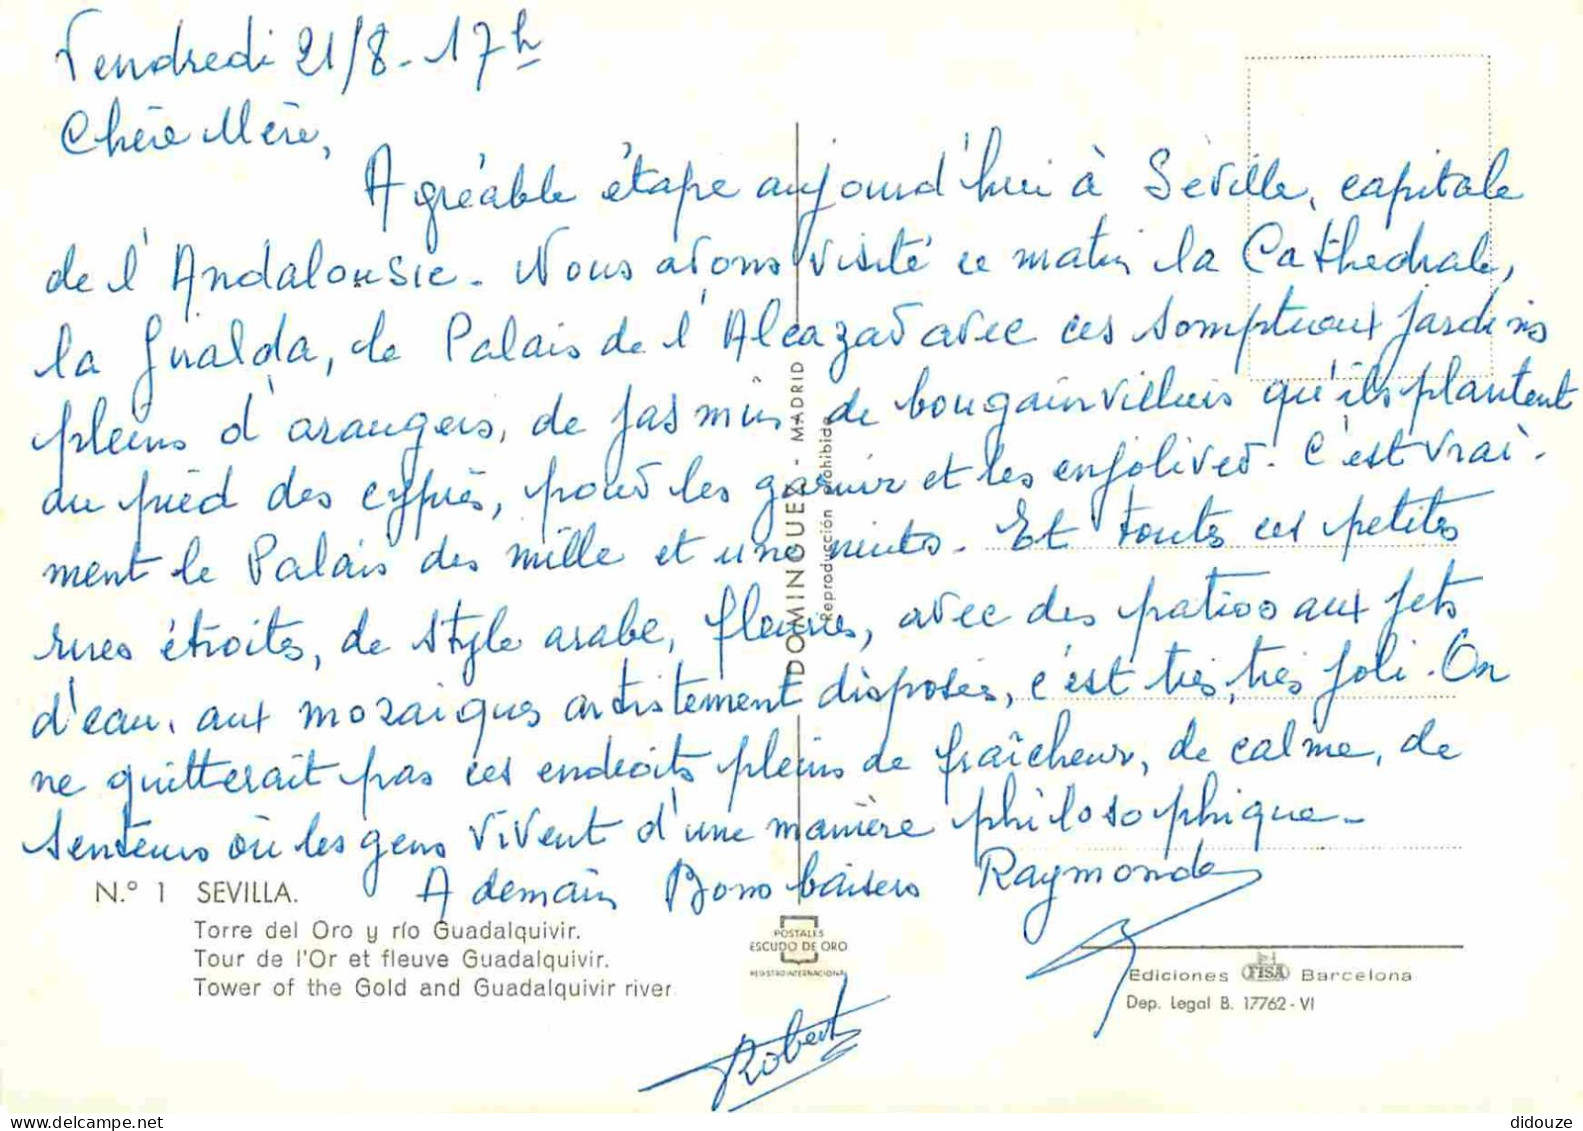 Vendredi 21/8 - 17h
Chère Mère,
Agréable étape aujourd'hui à Séville, capitale
de l'Andalousie. Nous avons visité ce matin la Cathedrale,
la Giralda, le Palais de l'Alcazar avec ces somptueux jardins
pleins d'orangers, de jasmins de bougainvilliers qu'ils plantent
au pied des cyprès, pour les garnir et les enjoliver. C'est vrai-
ment le Palais des mille et une nuits. Et toutes ces petites
rues étroites, de style arabe, fleuries, avec des patios aux jets
d'eau, aux mozaiques artistement disposées, c'est très, très joli. On
ne quitterait pas ces endroits pleins de fraîcheur, de calme, de
senteurs où les gens vivent d'une manière philosophique.
A demain Bons baisers Raymonde
Robert
N.º 1 SEVILLA.
Torre del Oro y río Guadalquivir.
Tour de l'Or et fleuve Guadalquivir.
Tower of the Gold and Guadalquivir river.
DOMINGUEZ - MADRID
Reproducción prohibida
POSTALES
ESCUDO DE ORO
REGISTRO INTERNACIONAL
Ediciones FISA Barcelona
Dep. Legal B. 17762 - VI
didouze